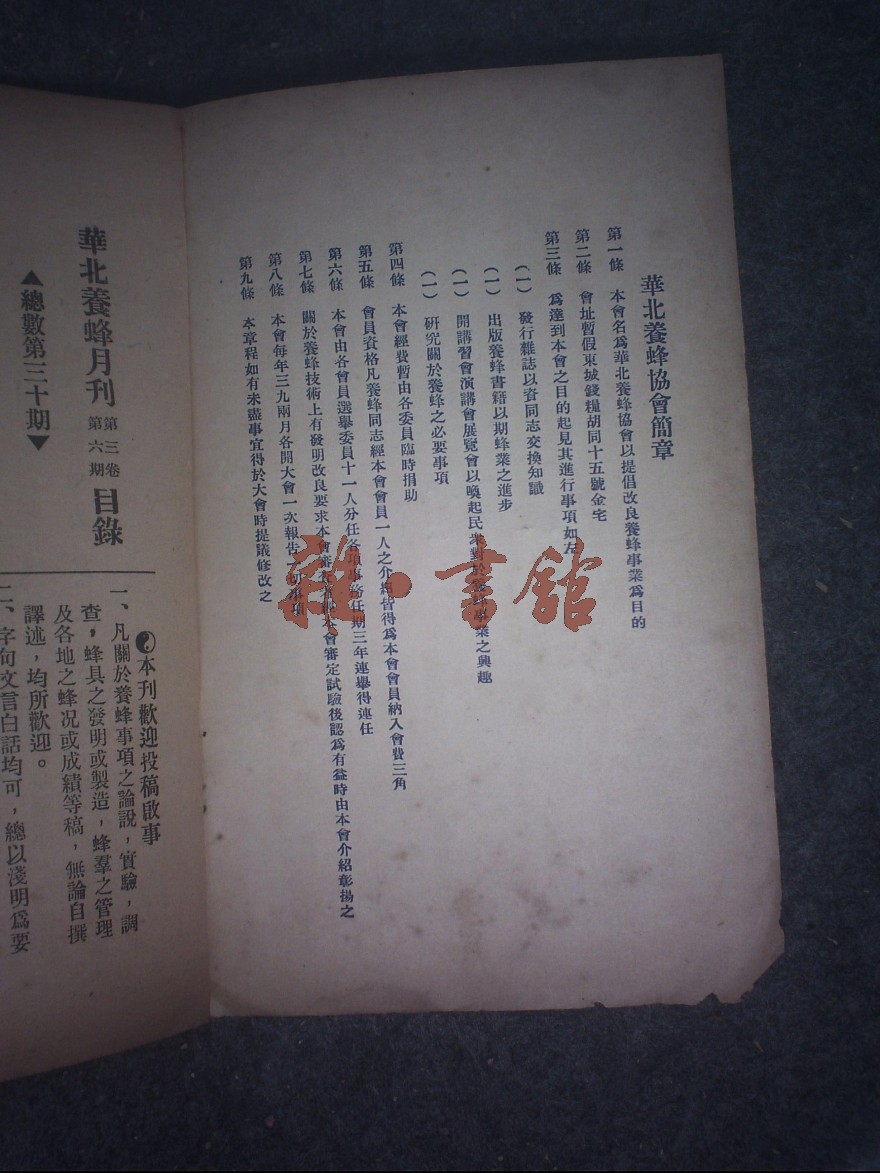 華北養蜂協會簡章
第一條 本會名為華北養蜂協會以提倡改良養蜂事業為目的
第二條 會址暫假東城錢糧胡同十五號金宅
第三條 為達到本會之目的起見其進行事項如左
(一) 發行雜誌以資同志交換知識
(一) 出版養蜂書籍以期蜂業之進步
(一) 開講習會演講會展覽會以喚起民衆對於養蜂事業之興趣
(一) 研究關於養蜂之必要事項
第四條 本會經費暫由各委員臨時捐助
第五條 會員資格凡養蜂同志經本會會員一人之介紹皆得為本會會員納入會費三角
第六條 本會由各會員選舉委員十一人分任各項事務任期三年連舉得連任
第七條 關於養蜂技術上有發明改良要求本會審查者經本會審定試驗後認為有益時由本會介紹彰揚之
第八條 本會每年三九兩月各開大會一次報告一切事項
第九條 本章程如有未盡事宜得於大會時提議修改之
華北養蜂月刊 第三卷 第六期 目錄
▲總數第三十期▼
本刊歡迎投稿啟事
一、凡關於養蜂事項之論說,實驗,調
查,蜂具之發明或製造,蜂羣之管理
及各地之蜂况或成績等稿,無論自撰
譯述,均所歡迎。
二、字句文言白話均可,總以淺明為要
雜·書館